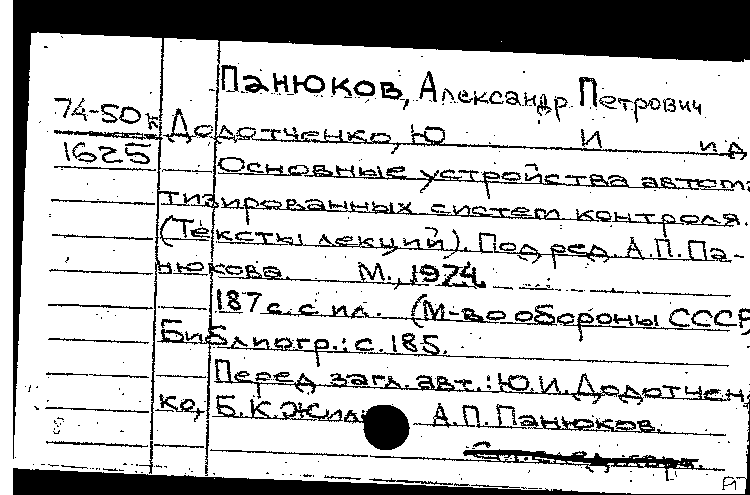 Панюков, Александр Петрович
74-50к
1625
Додотченко, Ю И и д
Основные устройства автома
тизированных систем контроля.
(Тексты лекций). Под ред. А.П.Па-
нюкова. М., 1974.
187 с. с ил. (М-во обороны СССР)
Библиогр.: с. 185.
Перед загл. авт.: Ю.И.Додотчен
ко, Б.К. А.П.Панюков.
8